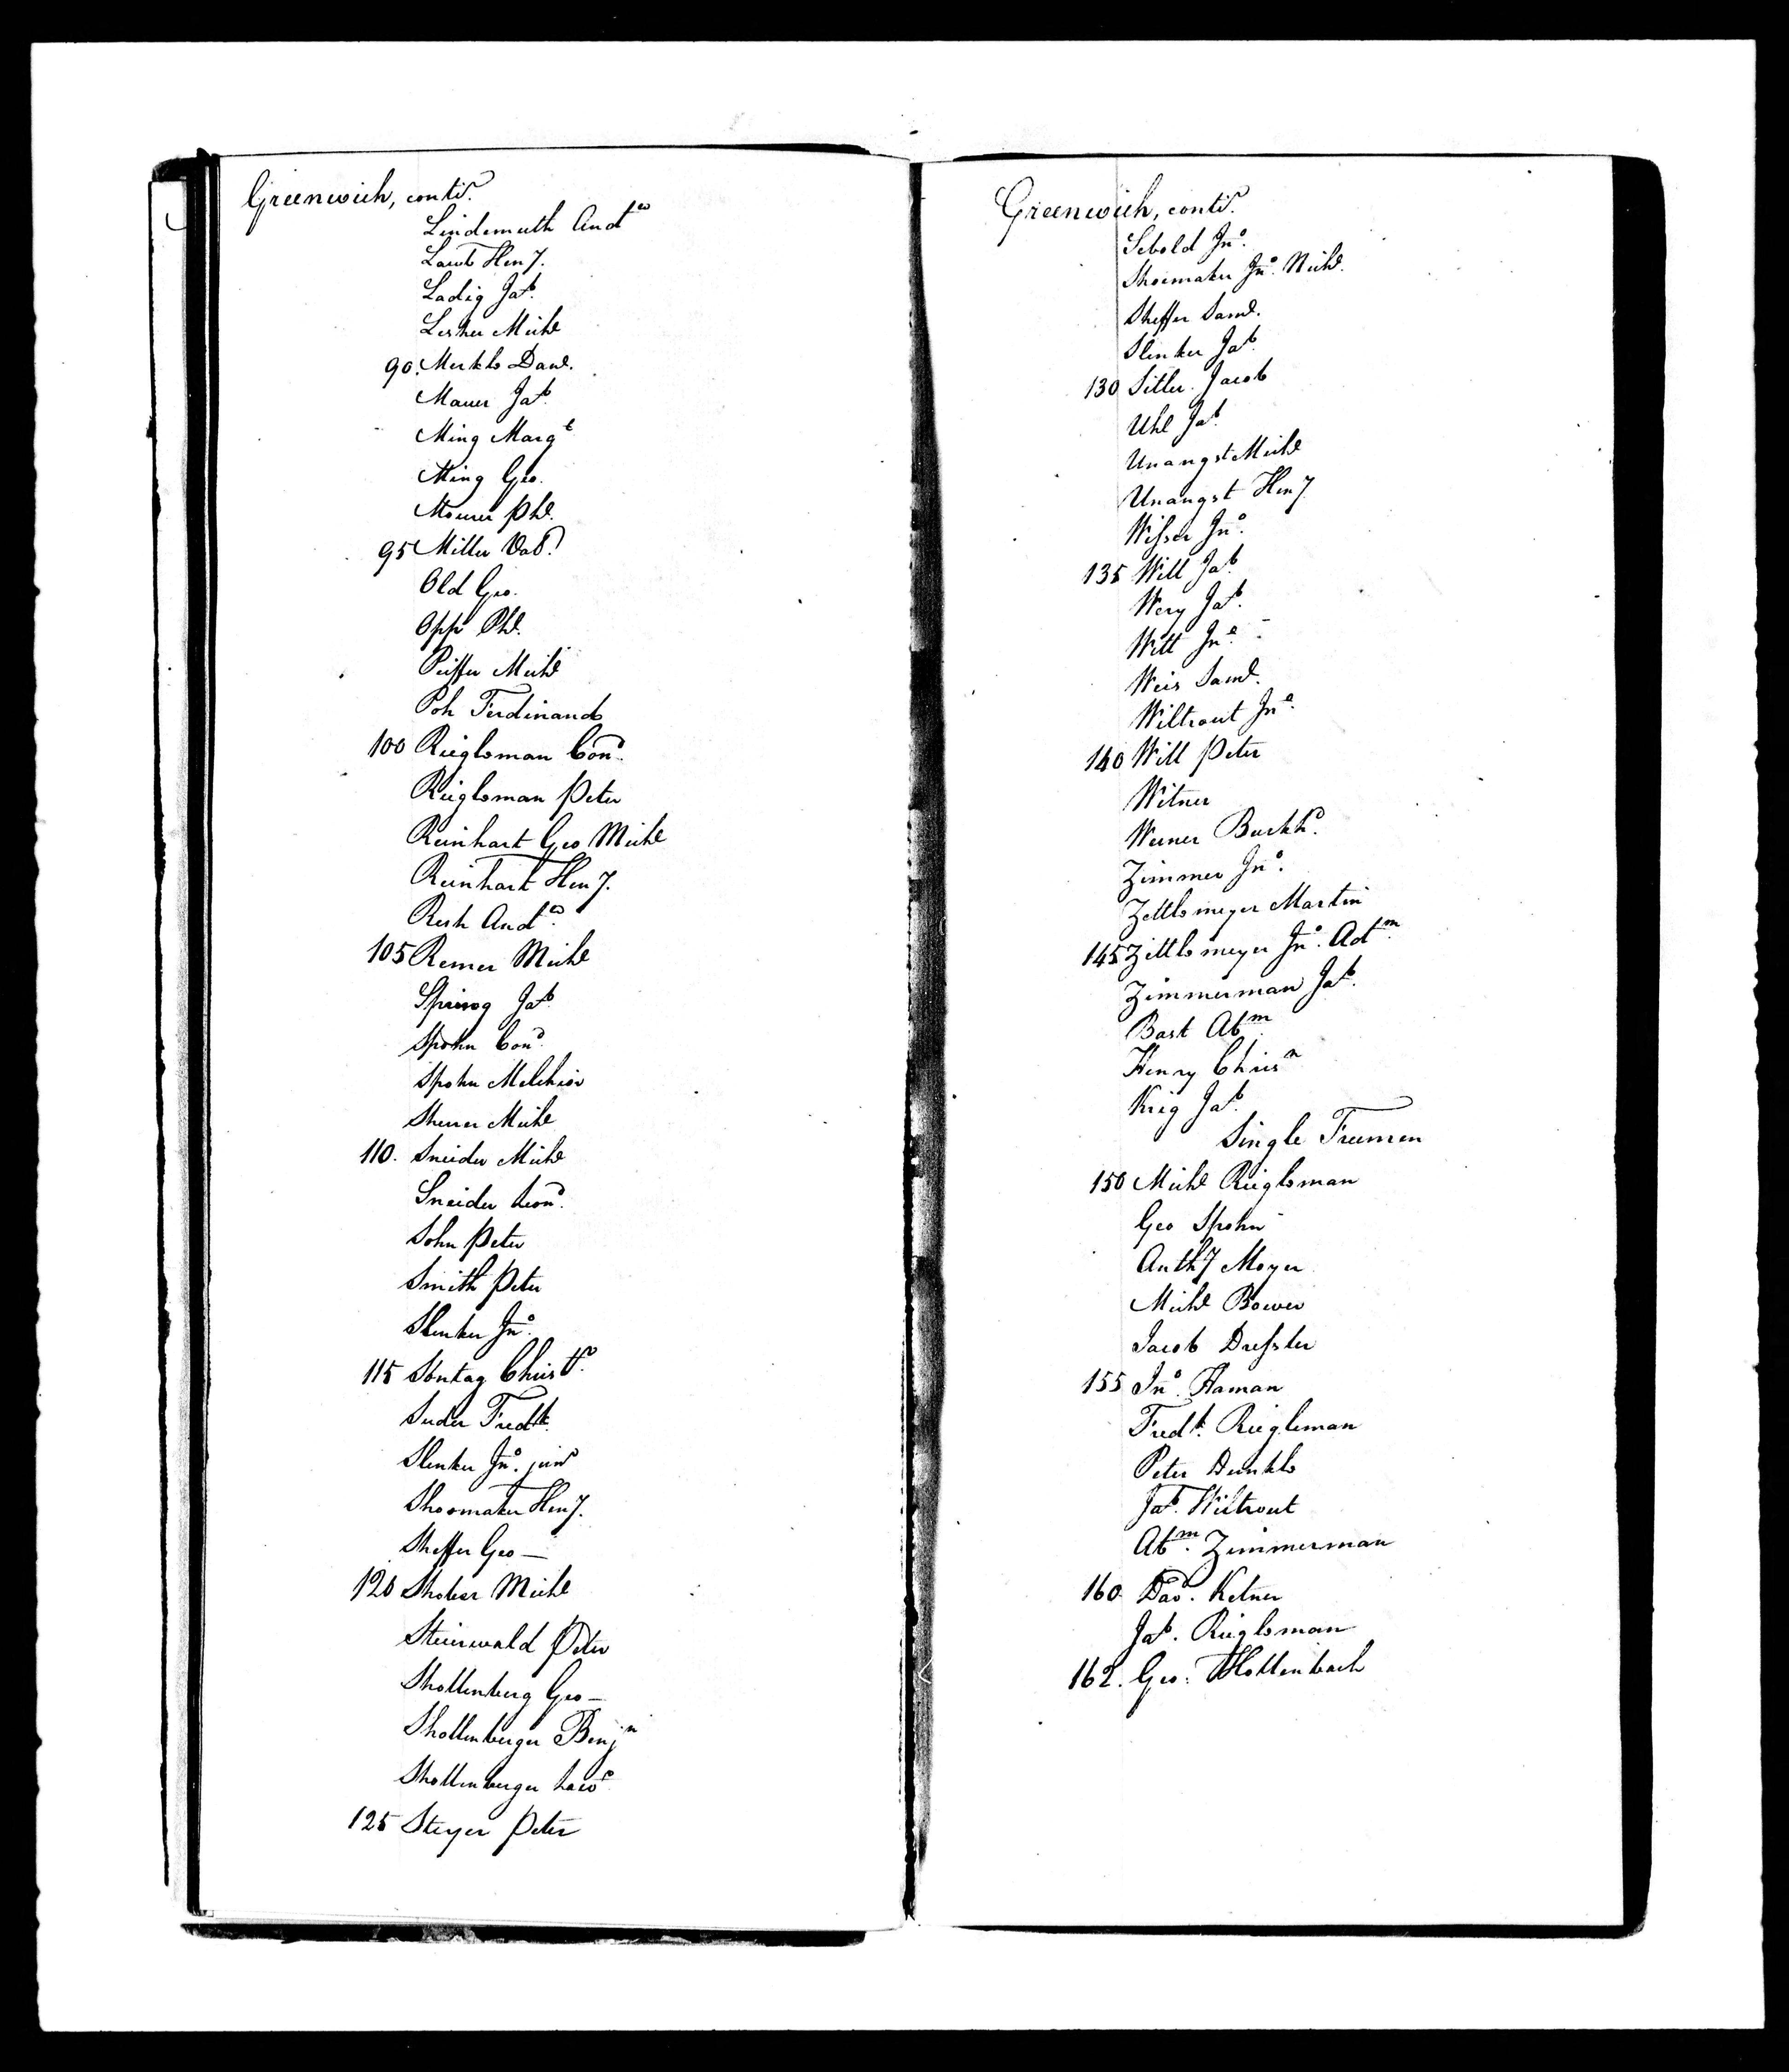 Greenwich, contd.
Lindemuth Andw
Laub Heny.
Ladig Jab.
Lesher Michl
90. Merkle Danl.
Mauer Jab.
Ming Margt
Ming Geo.
Mourer Phl.
95 Miller Vad.
Old Geo.
Opp Phl.
Peiffer Michl
Poh Ferdinand
100 Riegleman Cond.
Riegleman Peter
Reinhart Geo Michl
Reinhart Heny.
Resh Andw.
105 Remer Michl
Spring Jab.
Spohn Cond.
Spohn Melchior
Sherer Michl
110. Sneider Michl
Sneider Leond.
Sohn Peter
Smith Peter
Slenker Jno.
115 Sontag Christr.
Suder Fredk.
Slenker Jno. junr
Shoemaker Heny.
Sheffer Geo —
120 Shober Michl
Steinwald Peter
Shollenberg Geo —
Shollenberger Benjn
Shollenberger Lawe
125 Steyer Peter
Greenwich, contd.
Sebold Jno.
Shoemaker Jno. Michl.
Sheffer Saml.
Slenker Jab.
130 Sitler. Jacob
Uhl Jab.
Unangst Michl
Unangst Heny
Wisser Jno.
135 Will Jab.
Wery Jab.
Witt Jno.
Weis Saml.
Wiltrout Jno.
140 Will Peter
Witner
Werner Burkhd.
Zimmer Jno.
Zettlemeyer Martin
145 Zettlemeyer Jno. Adm.
Zimmerman Jab.
Bast Abm.
Henry Chrisn
Krig Jab.
Single Freemen
150 Michl Riegleman
Geo Spohn
Anthy Moyer
Michl Bower
Jacob Dressler
155 Jno. Haman
Fredk. Riegleman
Peter Dunkle
Jab. Wiltrout
Abm. Zimmerman
160. Dad. Ketner
Jab. Riegleman
162. Geo: Hollenbach